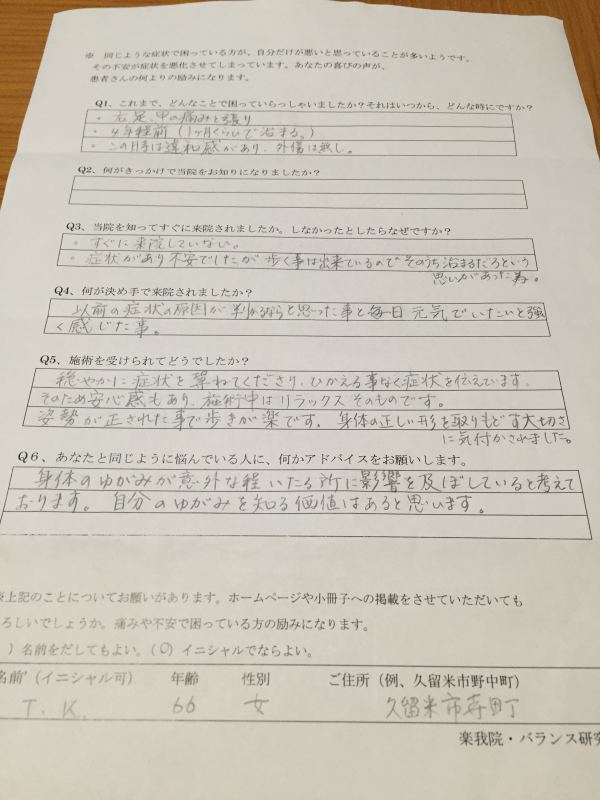 ※ 同じような症状で困っている方が、自分だけが悪いと思っていることが多いようです。
その不安が症状を悪化させてしまっています。あなたの喜びの声が、
患者さんの何よりの励みになります。
Q1、これまで、どんなことで困っていらっしゃいましたか？それはいつから、どんな時にですか？
・右足、甲の痛みと張り
・4年程前（1ヶ月くらいで治まる。）
・この1ヶ月は違和感があり、外傷は無し。
Q2、何がきっかけで当院をお知りになりましたか？
Q3、当院を知ってすぐに来院されましたか。しなかったとしたらなぜですか？
・すぐに来院していない。
・症状があり不安でしたが歩く事は出来ているのでそのうち治まるだろという
思いがあった為。
Q4、何が決め手で来院されましたか？
以前の症状の原因が判かるならと思った事と毎日元気でいたいと強
く感じた事。
Q5、施術を受けられてどうでしたか？
穏やかに症状を尋ねてくださり、ひかえる事なく症状を伝えています。
そのため安心感もあり、施術中はリラックスそのものです。
姿勢が正された事で歩きが楽です。身体の正しい形を取りもどす大切さ
に気付かされました。
Q６、あなたと同じように悩んでいる人に、何かアドバイスをお願いします。
身体のゆがみが意外な程いたる所に影響を及ぼしていると考えて
おります。自分のゆがみを知る価値はあると思います。
※上記のことについてお願いがあります。ホームページや小冊子への掲載をさせていただいても
ろしいでしょうか。痛みや不安で困っている方の励みになります。
）名前をだしてもよい。（○）イニシャルでならよい。
名前（イニシャル可） 年齢 性別 ご住所（例、久留米市野中町）
T. K. 66 女 久留米市寺町
楽我院・バランス研究